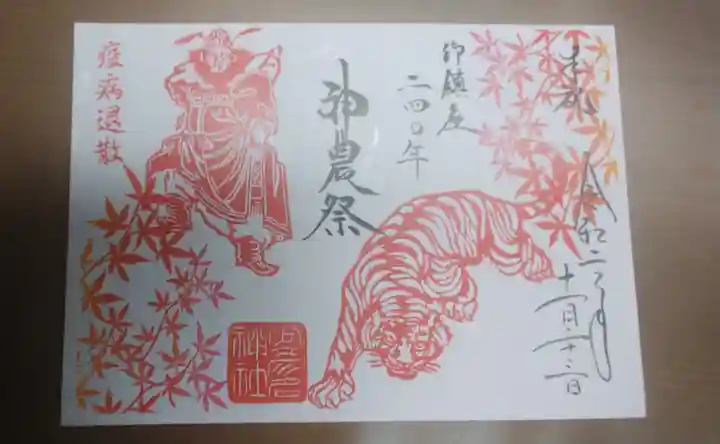 奉拝
令和二年
十一月二十二日
御鎮座
二四〇年
神農祭
疫病退散
神社